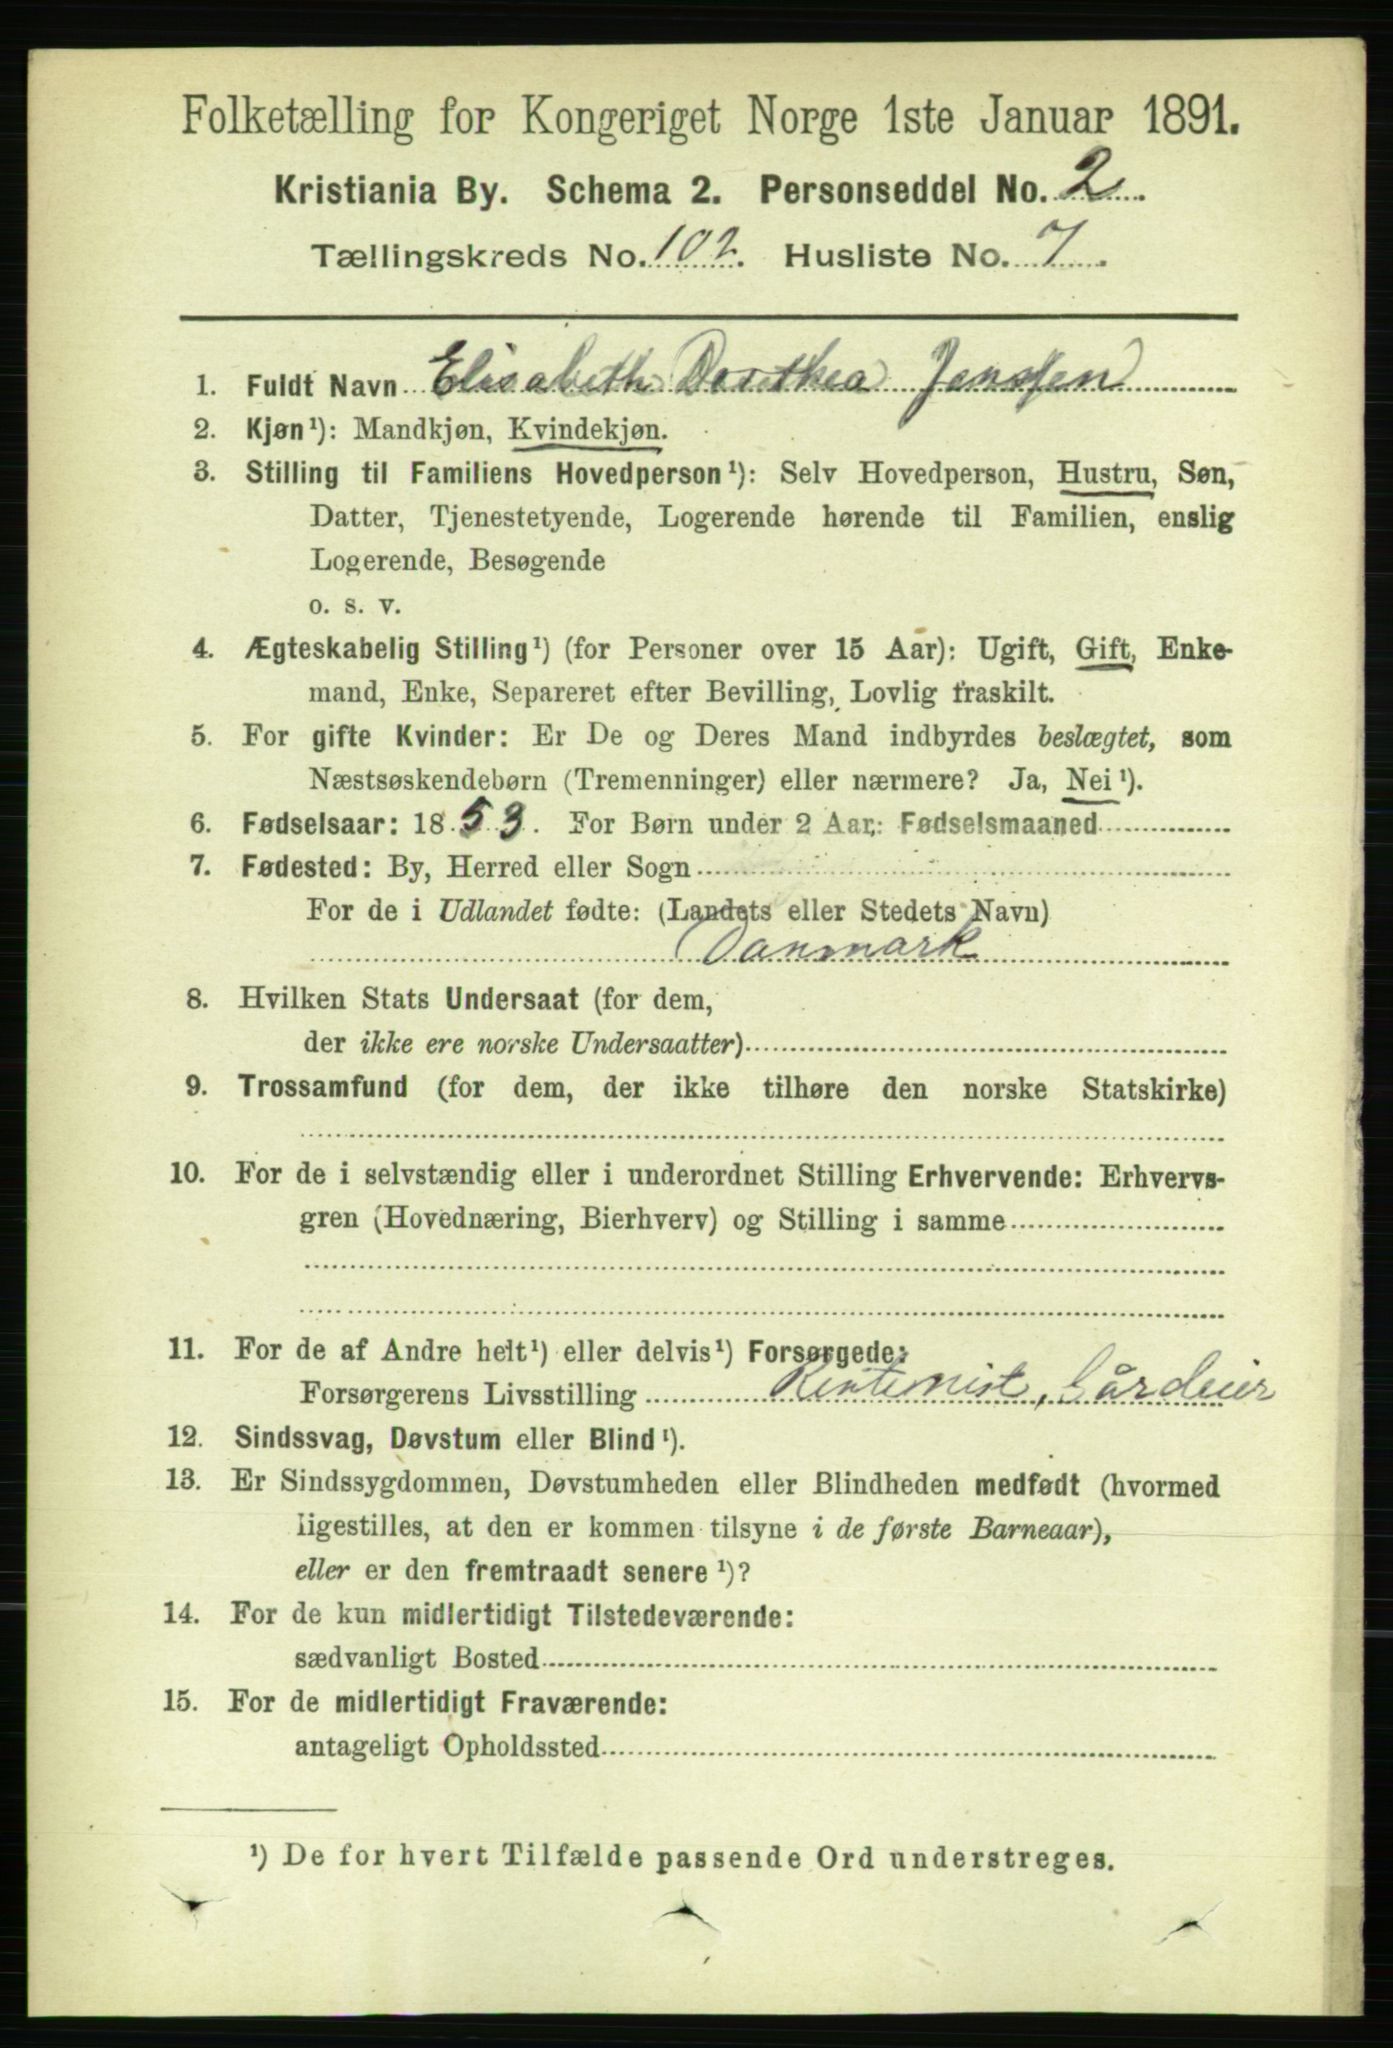 Folketælling for Kongeriget Norge 1ste Januar 1891.
Kristiania By. Schema 2. Personseddel No. 2.
Tællingskreds No. 102. Husliste No. 7.
1. Fuldt Navn Elisabeth Dorthea Janssen
2. Kjøn¹): Mandkjøn, Kvindekjøn.
3. Stilling til Familiens Hovedperson¹): Selv Hovedperson, Hustru, Søn,
Datter, Tjenestetyende, Logerende hørende til Familien, enslig
Logerende, Besøgende
o. s. v.
4. Ægteskabelig Stilling¹) (for Personer over 15 Aar): Ugift, Gift, Enke-
mand, Enke, Separeret efter Bevilling, Lovlig fraskilt.
5. For gifte Kvinder: Er De og Deres Mand indbyrdes beslægtet, som
Næstsøskendebørn (Tremenninger) eller nærmere? Ja, Nei¹).
6. Fødselsaar: 1853. For Børn under 2 Aar: Fødselsmaaned
7. Fødested: By, Herred eller Sogn
For de i Udlandet fødte: (Landets eller Stedets Navn)
Danmark
8. Hvilken Stats Undersaat (for dem,
der ikke ere norske Undersaatter)
9. Trossamfund (for dem, der ikke tilhøre den norske Statskirke)
10. For de i selvstændig eller i underordnet Stilling Erhvervende: Erhvervs-
gren (Hovednæring, Bierhverv) og Stilling i samme
11. For de af Andre helt¹) eller delvis¹) Forsørgede:
Forsørgerens Livsstilling Rentenist, Gårdeier
12. Sindssvag, Døvstum eller Blind¹).
13. Er Sindssygdommen, Døvstumheden eller Blindheden medfødt (hvormed
ligestilles, at den er kommen tilsyne i de første Barneaar),
eller er den fremtraadt senere¹)?
14. For de kun midlertidigt Tilstedeværende:
sædvanligt Bosted
15. For de midlertidigt Fraværende:
antageligt Opholdssted
¹) De for hvert Tilfælde passende Ord understreges.